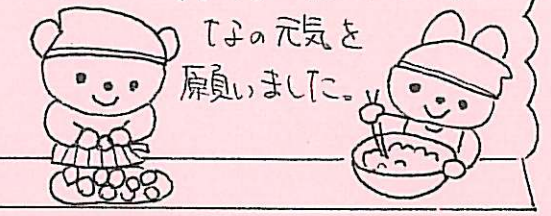 なの元気を
願いました。